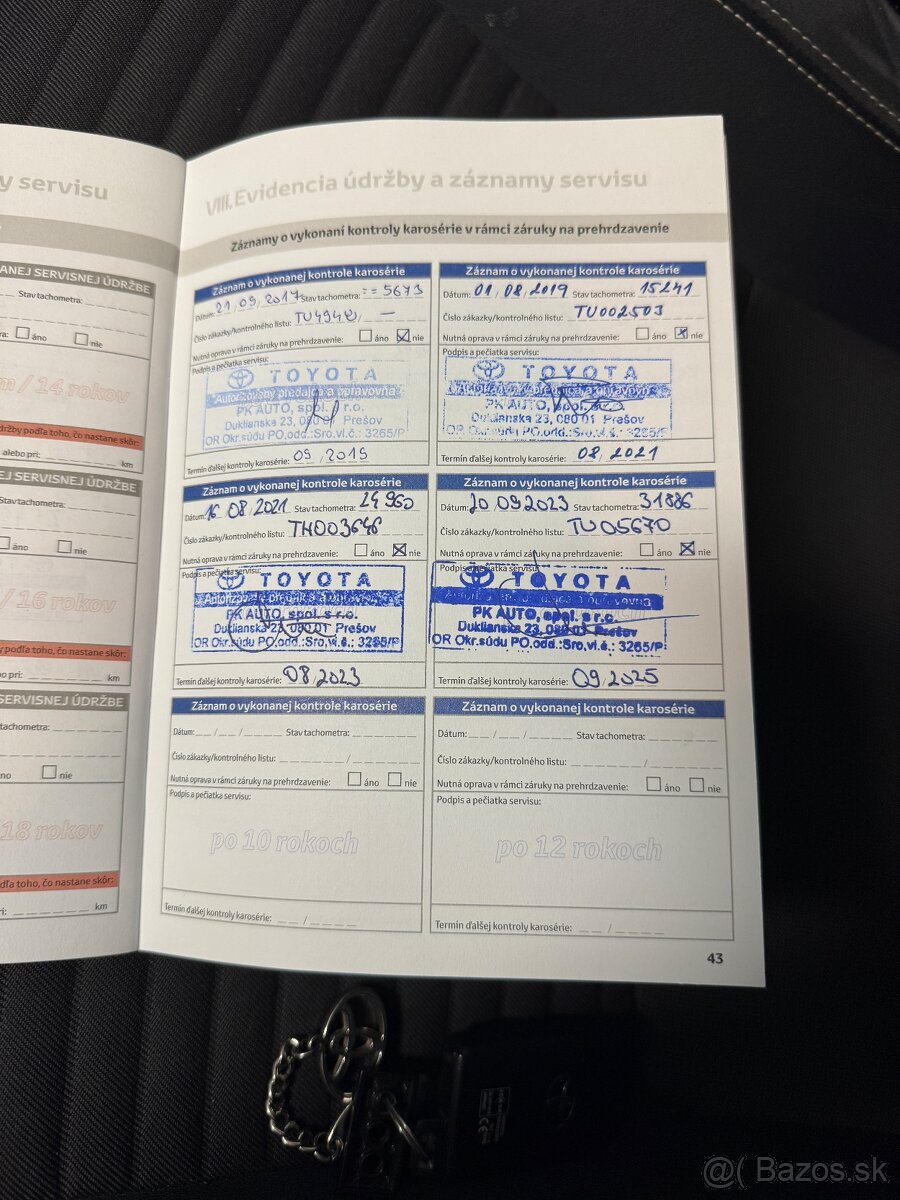 y servisu
ANEJ SERVISNEJ ÚDRŽBE
Stav tachometra:
áno
nie
m / 14 rokov
držby podľa toho, čo nastane skôr:
alebo pri: km
EJ SERVISNEJ ÚDRŽBE
Stav tachometra:
áno
nie
/ 16 rokov
y podľa toho, čo nastane skôr:
o pri: km
SERVISNEJ ÚDRŽBE
tachometra:
no
nie
18 rokov
dľa toho, čo nastane skôr:
ri: km
VIII. Evidencia údržby a záznamy servisu
Záznamy o vykonaní kontroly karosérie v rámci záruky na prehrdzavenie
Záznam o vykonanej kontrole karosérie
Dátum: 21/09/2017 Stav tachometra: 5673
Číslo zákazky/kontrolného listu:
Nutná oprava v rámci záruky na prehrdzavenie: áno nie
Podpis a pečiatka servisu:
TOYOTA
Autorizovaný predajca a opravovňa
PK AUTO, spol. s r.o.
Duklianska 23, 080 01 Prešov
OR Okr.súdu PO,odd.:Sro,vl.č.: 3265/P
Termín ďalšej kontroly karosérie: 09/2019
Záznam o vykonanej kontrole karosérie
Dátum: 01/08/2019 Stav tachometra: 15241
Číslo zákazky/kontrolného listu: TU002503
Nutná oprava v rámci záruky na prehrdzavenie: áno nie
Podpis a pečiatka servisu:
TOYOTA
Autorizovaný predajca a opravovňa
PK AUTO, spol. s r.o.
Duklianska 23, 080 01 Prešov
OR Okr.súdu PO,odd.:Sro,vl.č.: 3265/P
Termín ďalšej kontroly karosérie: 08/2021
Záznam o vykonanej kontrole karosérie
Dátum: 16 08 2021 Stav tachometra: 24960
Číslo zákazky/kontrolného listu: TH003646
Nutná oprava v rámci záruky na prehrdzavenie: áno nie
Podpis a pečiatka servisu:
TOYOTA
Autorizovaný predajca a opravovňa
PK AUTO, spol. s r.o.
Duklianska 23, 080 01 Prešov
OR Okr.súdu PO,odd.:Sro,vl.č.: 3265/P
Termín ďalšej kontroly karosérie: 08/2023
Záznam o vykonanej kontrole karosérie
Dátum: 20 09 2023 Stav tachometra: 31886
Číslo zákazky/kontrolného listu: TU05670
Nutná oprava v rámci záruky na prehrdzavenie: áno nie
Podpis a pečiatka servisu:
TOYOTA
Autorizovaný predajca a opravovňa
PK AUTO, spol. s r.o.
Duklianska 23, 080 01 Prešov
OR Okr.súdu PO,odd.:Sro,vl.č.: 3265/P
Termín ďalšej kontroly karosérie: 09/2025
Záznam o vykonanej kontrole karosérie
Dátum: / / Stav tachometra:
Číslo zákazky/kontrolného listu: /
Nutná oprava v rámci záruky na prehrdzavenie: áno nie
Podpis a pečiatka servisu:
po 10 rokoch
Termín ďalšej kontroly karosérie: /
Záznam o vykonanej kontrole karosérie
Dátum: / / Stav tachometra:
Číslo zákazky/kontrolného listu: /
Nutná oprava v rámci záruky na prehrdzavenie: áno nie
Podpis a pečiatka servisu:
po 12 rokoch
Termín ďalšej kontroly karosérie: /
43
@( Bazos.sk